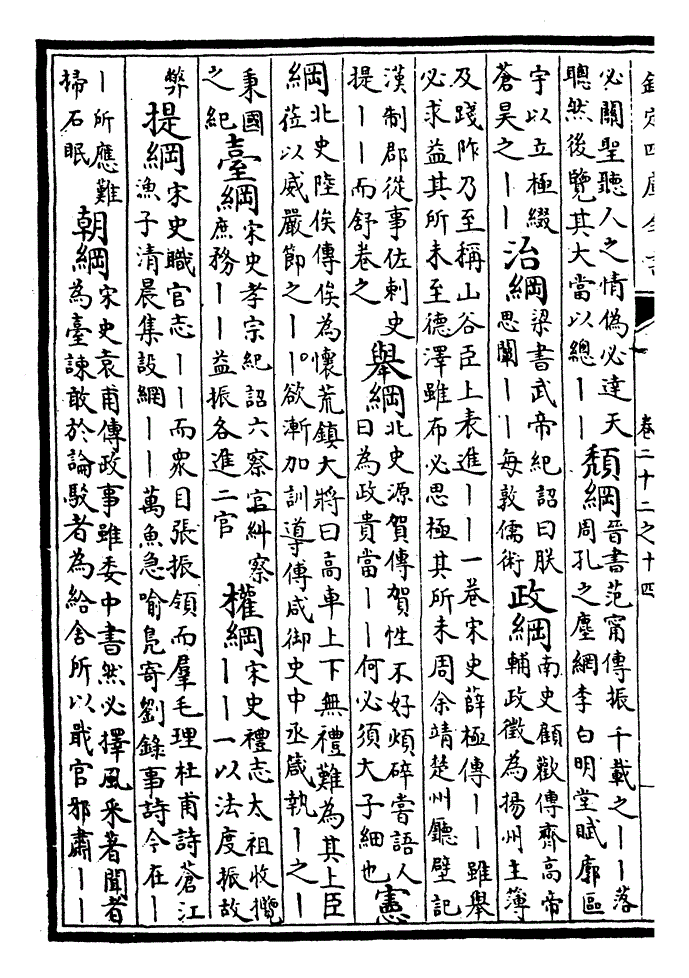 欽定四庫全書　卷二十二之十四
必關聖聽人之情偽必達天
聰然後覽其大當以總丨丨
頹綱
晉書范甯傳振千載之丨丨落
周孔之塵網李白明堂賦廓區
宇以立極綴
蒼昊之丨丨
治綱
梁書武帝紀詔曰朕
思闡丨丨每敦儒術
政綱
南史顧歡傳齊高帝
輔政徵為揚州主簿
及踐阼乃至稱山谷臣上表進丨丨一卷宋史薛極傳丨丨雖舉
必求益其所未至德澤雖布必思極其所未周余靖楚州廳壁記
漢制郡從事佐刺史
提丨丨而舒卷之
舉綱
北史源賀傳賀性不好煩碎嘗語人
曰為政貴當丨丨何必須大子細也
憲
綱
北史陸俟傳俟為懷荒鎮大將曰高車上下無禮難為其上臣
莅以威嚴節之丨丨欲漸加訓導傅咸御史中丞箴執丨之丨
秉國
之紀
臺綱
宋史孝宗紀詔六察官糾察
庶務丨丨益振各進二官
權綱
宋史禮志太祖收攬
丨丨一以法度振故
弊
提綱
宋史職官志丨丨而衆目張振領而羣毛理杜甫詩蒼江
漁子清晨集設網丨丨萬魚急喻鳧寄劉錄事詩今在丨
丨所應難
掃石眠
朝綱
宋史袁甫傳政事雖委中書然必擇風采著聞者
為臺諫敢於論駁者為給舍所以戢官邪肅丨丨